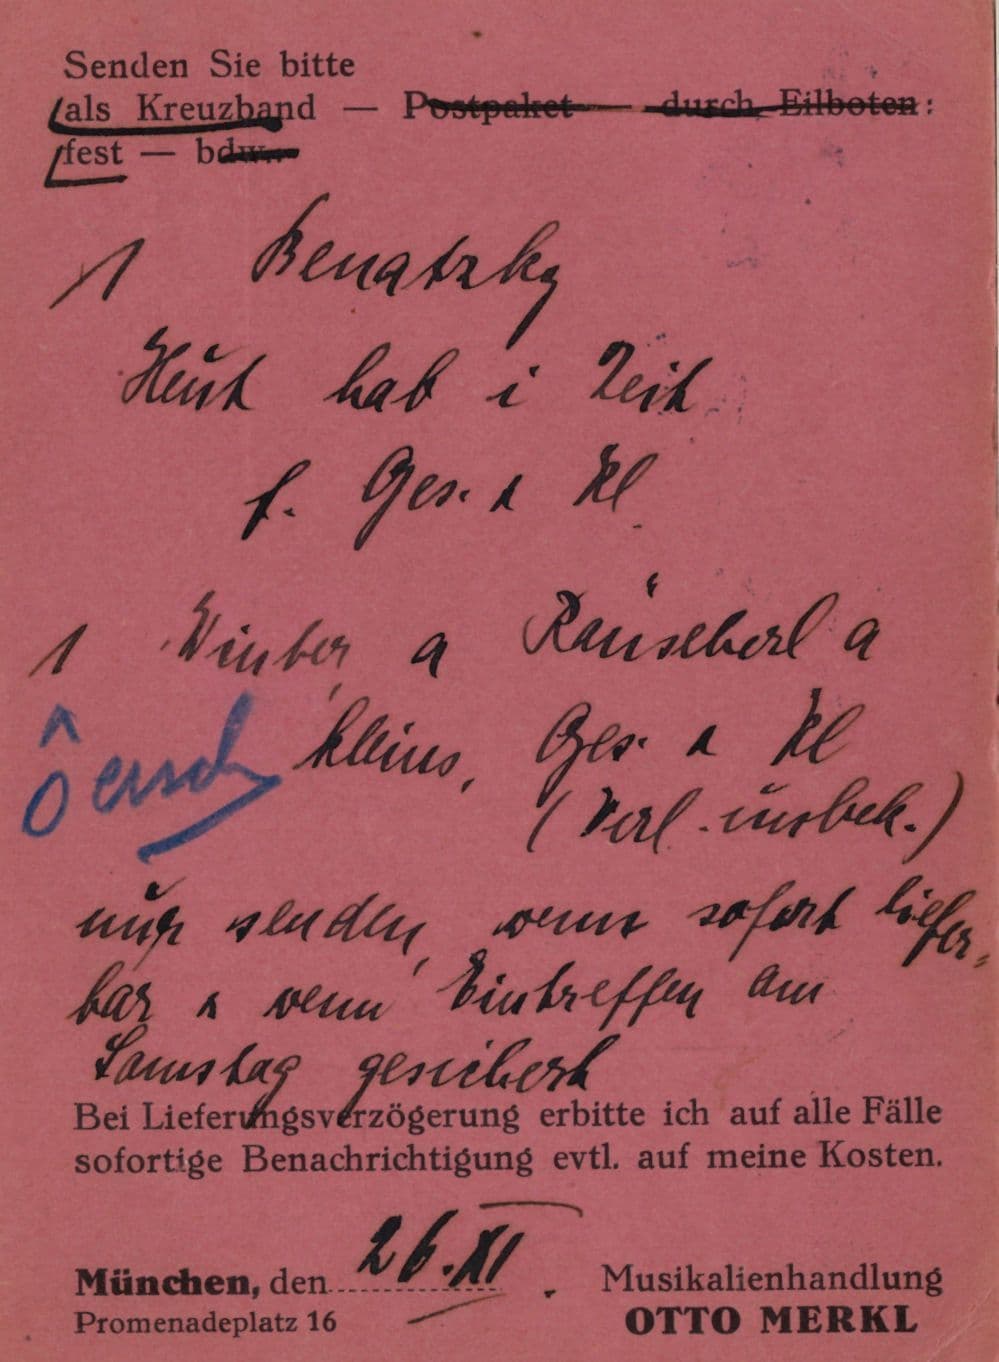 Senden Sie bitte
als Kreuzband — Postpaket — durch Eilboten:
fest — bdw..
1 Benatzky
Heut hab i Zeit
f. Ges. u Kl.
1 Winter, a Räuscherl a
kleins, Ges. u Kl
(Verl. unbek.)
nur senden, wenn sofort liefer=
bar u wenn Eintreffen am
Samstag gesichert
Bei Lieferungsverzögerung erbitte ich auf alle Fälle
sofortige Benachrichtigung evtl. auf meine Kosten.
München, den 26. XI.
Promenadeplatz 16
Musikalienhandlung
OTTO MERKL